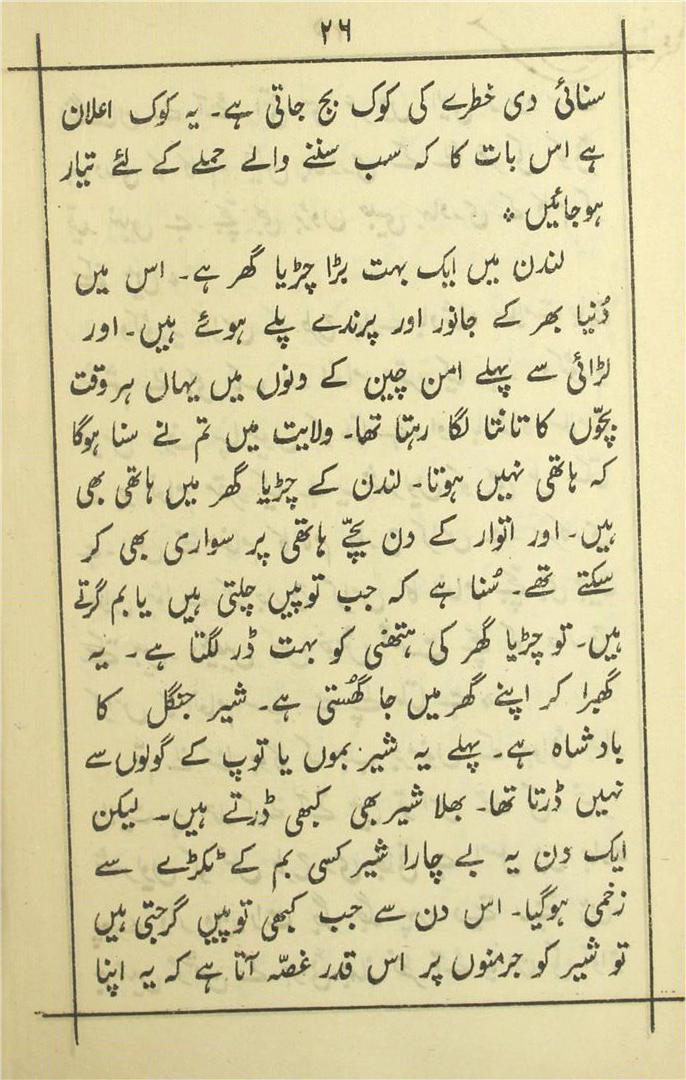 ۲۶
سنائی دی خطرے کی کوک بج جاتی ہے۔ یہ کوک اعلان
ہے اس بات کا کہ سب سننے والے حملے کے لئے تیار
ہوجائیں ۔
لندن میں ایک بہت بڑا چڑیا گھر ہے۔ اس میں
دُنیا بھر کے جانور اور پرندے پلے ہوئے ہیں۔ اور
لڑائی سے پہلے امن چین کے دنوں میں یہاں ہر وقت
بچّوں کا تانتا لگا رہتا تھا۔ ولایت میں تم نے سنا ہوگا
کہ ہاتھی نہیں ہوتا۔ لندن کے چڑیا گھر میں ہاتھی بھی
ہیں۔ اور اتوار کے دن بچّے ہاتھی پر سواری بھی کر
سکتے تھے۔ سُنا ہے کہ جب توپیں چلتی ہیں یا بم گرتے
ہیں۔ تو چڑیا گھر کی ہتھنی کو بہت ڈر لگتا ہے۔ یہ
گھبرا کر اپنے گھر میں جا گھُستی ہے۔ شیر جنگل کا
بادشاہ ہے۔ پہلے یہ شیر بموں یا توپ کے گولوں سے
نہیں ڈرتا تھا۔ بھلا شیر بھی کبھی ڈرتے ہیں۔ لیکن
ایک دن یہ بے چارا شیر کسی بم کے ٹکڑے سے
زخمی ہوگیا۔ اس دن سے جب کبھی توپیں گرجتی ہیں
تو شیر کو جرمنوں پر اس قدر غصّہ آتا ہے کہ یہ اپنا